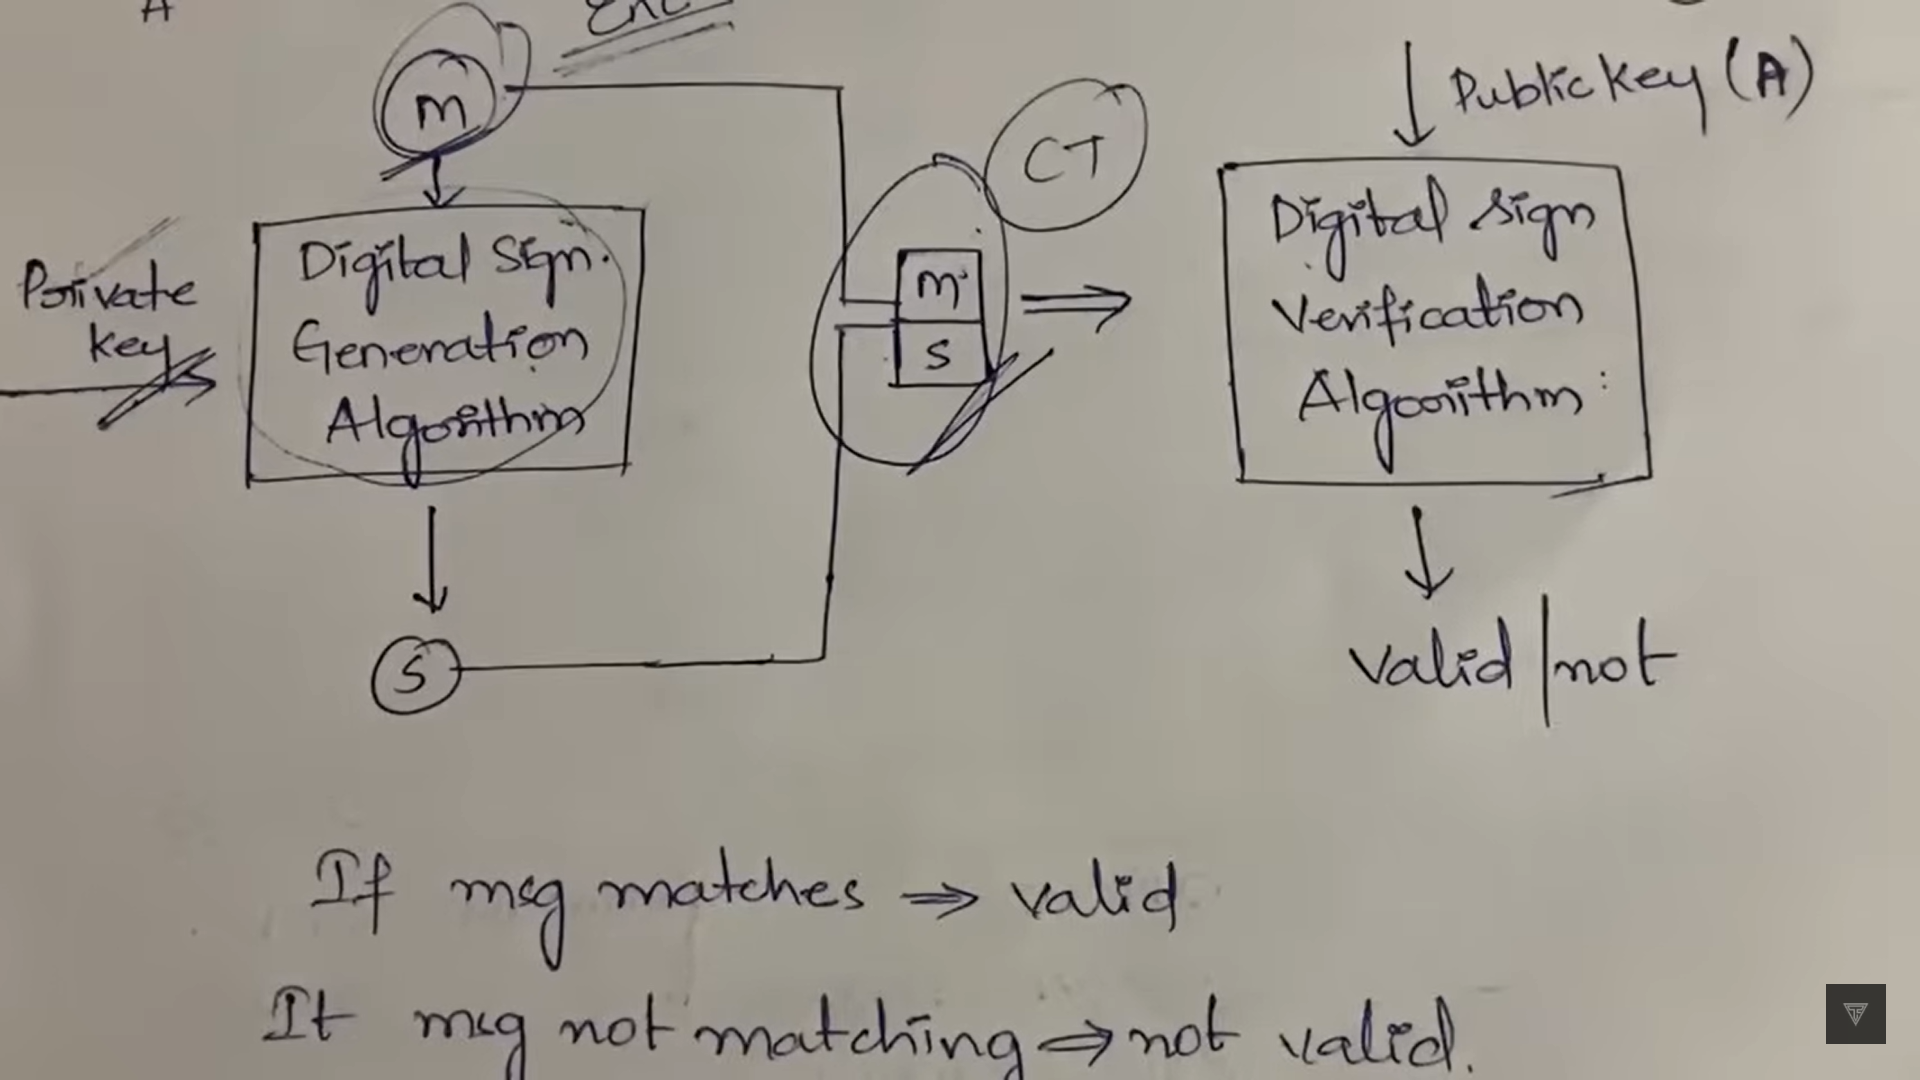 A
Enc
m
Private
key
Digital Sign.
Generation
Algorithm
S
m
S
CT
Public key (A)
Digital Sign
Verification
Algorithm
valid | not
If msg matches ⇒ valid
If msg not matching ⇒ not valid.